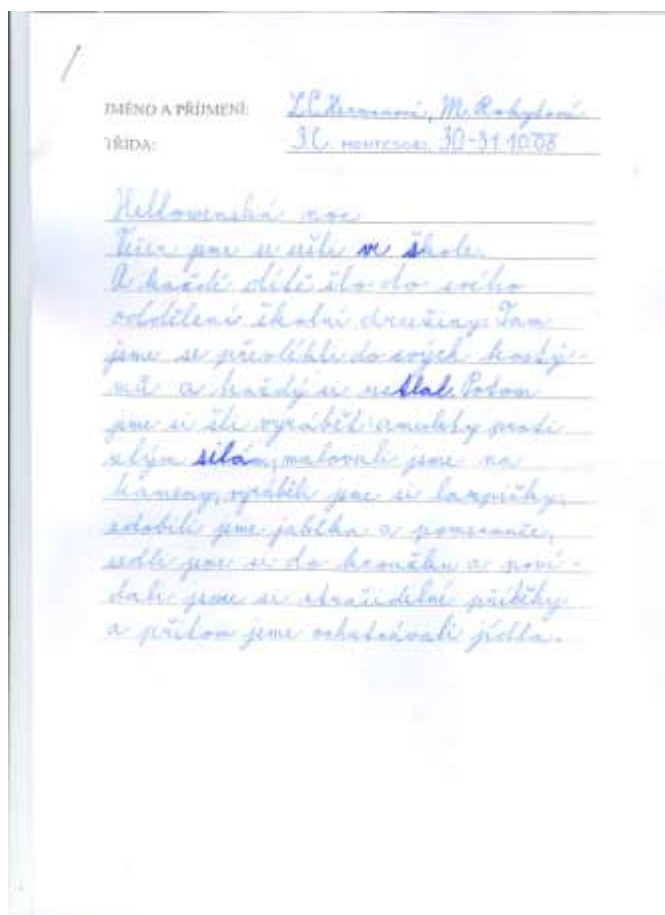 JMÉNO A PŘÍJMENÍ: L.C. Hermanová, M. Rokytová
TŘÍDA: 3.C. MONTESORI 30-31.10.08
Hellowenská noc
Večer jsme se sešli ve škole.
A každé dítě šlo do svého
oddělení školní družiny. Tam
jsme se převlékli do svých kostý-
mů a každý si ustlal. Potom
jsme si šli vyrábět amulety proti
zlým silám, malovali jsme na
kameny, vyráběli jsme si lampičky,
zdobili jsme jablka a pomeranče,
sedli jsme si do kroužku a poví-
dali jsme si strašidelné příběhy
a přitom jsme ochutnávali jídla.